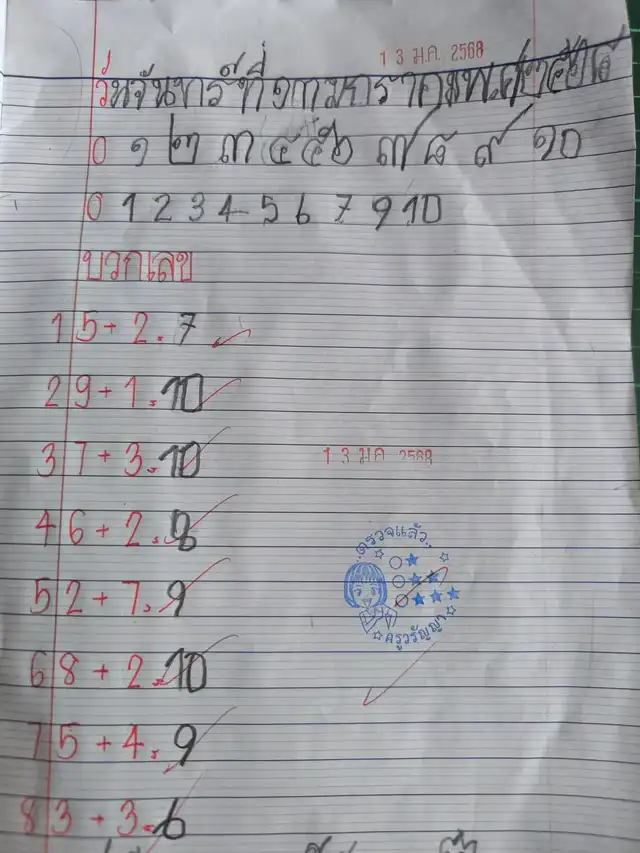 13 ม.ค. 2568
วันจันทร์ที่๑๓มกราคมพ.ศ.๒๕๖๘
๐ ๑ ๒ ๓ ๔ ๕ ๖ ๗ ๘ ๙ ๑๐
0 1 2 3 4 5 6 7 9 10
บวกเลข
1 5 + 2 = 7
2 9 + 1 = 10
3 7 + 3 = 10
13 ม.ค. 2568
4 6 + 2 = 8
ตรวจแล้ว
5 2 + 7 = 9
ครูวรัญญา
6 8 + 2 = 10
7 5 + 4 = 9
8 3 + 3 = 6